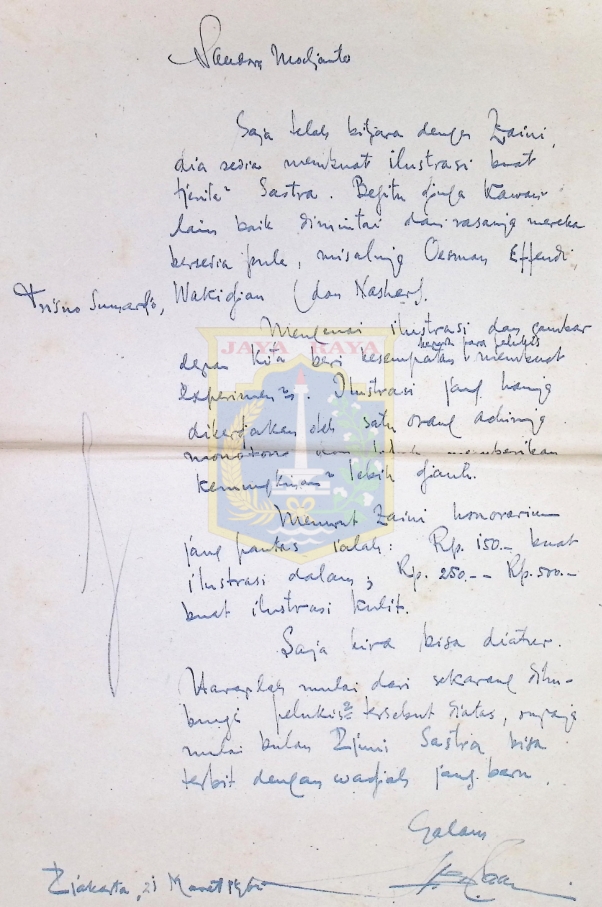 Saudara Modjanto
Saja telah bitjara dengan Zaini,
dia sedia membuat ilustrasi buat
tjerita² Sastra. Begitu djuga kawan²
lain baik dimintai dan rasanja mereka
bersedia pula, misalnja Oesman Effendi,
Trisno Sumardjo, Wakidjan (dan Nashar).
Mengenai ilustrasi dan gambar
depan kita beri kesempatan kepada para pelukis membuat
experimen². Ilustrasi jang hanja
dikerdjakan oleh satu orang achirnja
monotoon dan tidak memberikan
kemungkinan² lebih djauh.
Menurut Zaini honorarium
jang pantas ialah: Rp. 150.- buat
ilustrasi dalam; Rp. 250.-- Rp. 500.-
buat ilustrasi kulit.
Saja kira bisa diatur.
Haraplah mulai dari sekarang dihu-
bungi pelukis² tersebut diatas, supaja
mulai bulan Djuni Sastra bisa
terbit dengan wadjah jang baru.
Salam
Djakarta, 21 Maret
JAYA RAYA